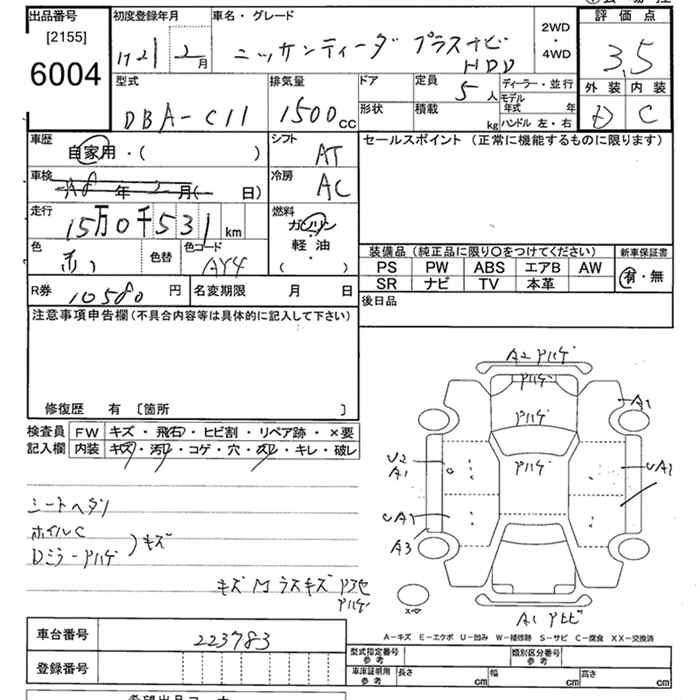 出品番号
[2155]
6004
初度登録年月
H21 2 月
車名・グレード
ニッサンティーダ プラスナビ
HDD
2WD
・
4WD
評価点
3.5
外装 内装
D C
型式
DBA-C11
排気量
1500cc
ドア
形状
定員
5人
積載
kg
ディーラー・並行
モデル年式 年
ハンドル 左・右
車歴
自家用・( )
シフト
AT
セールスポイント (正常に機能するものに限ります)
車検
年 月( 日)
冷房
AC
走行
15万0千531km
燃料
ガソリン
軽油
( ・ )
色
赤
色替
色コード
AY4
装備品 (純正品に限り〇をつけてください)
PS PW ABS エアB AW
SR ナビ TV 本革
新車保証書
有・無
R券 10580 円
名変期限 月 日
後日品
注意事項申告欄 (不具合内容等は具体的に記入して下さい)
修復歴 有 〔箇所 〕
検査員
記入欄
FW キズ・飛石・ヒビ割・リペア跡・×要
内装 キズ・汚レ・コゲ・穴・スレ・キレ・破レ
シートヘタリ
ホイルC
Dミラーアハゲ
キズ
A2 アハゲ
アハゲ
アハゲ
アハゲ
A1
U2
A1
UA2
UA1
A3
スペア
A1 アヒビ
車台番号 223783
登録番号
A－キズ E－エクボ U－凹み W－補修跡 S－サビ C－腐食 XX－交換済
型式指定番号
参考
類別区分番号
参考
車庫証明用
参考
長さ cm 幅 cm 高さ cm